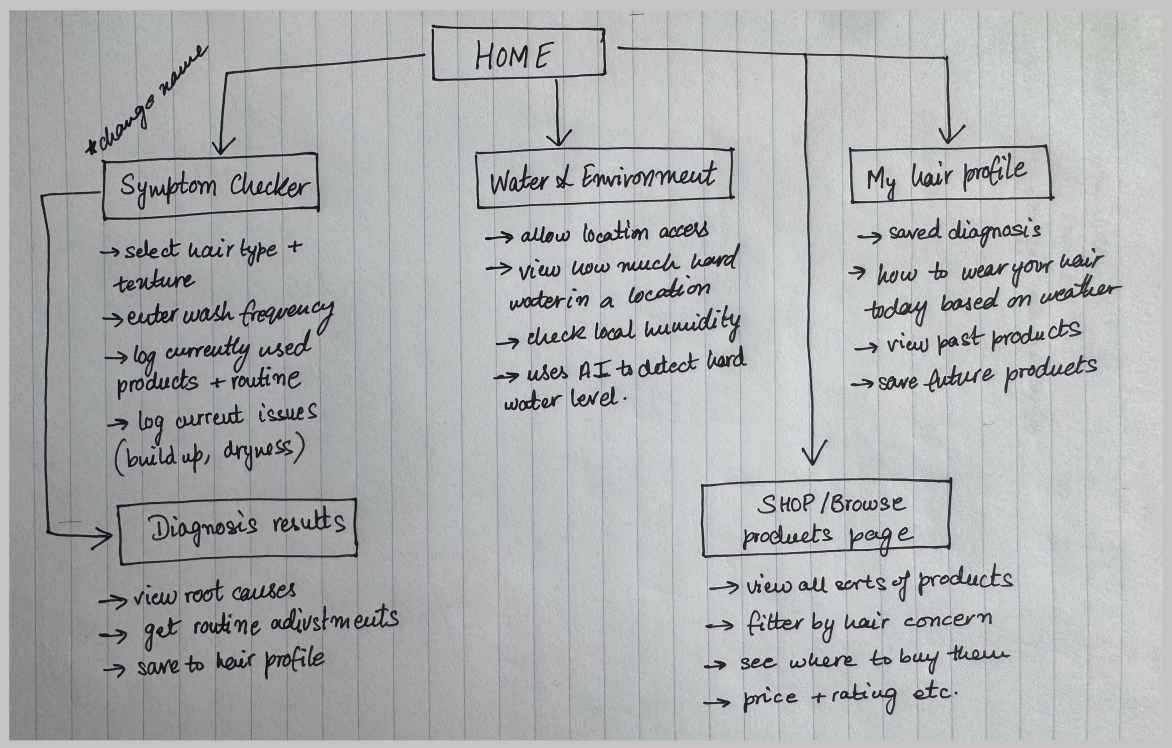 HOME
*change name
Symptom Checker
→ select hair type +
texture
→ enter wash frequency
→ log currently used
products + routine
→ log current issues
(build up, dryness)
Diagnosis results
→ view root causes
→ get routine adjustments
→ save to hair profile
Water & Environment
→ allow location access
→ view how much hard
water in a location
→ check local humidity
→ uses AI to detect hard
water level.
My hair profile
→ saved diagnosis
→ how to wear your hair
today based on weather
→ view past products
→ save future products
SHOP/Browse
products page
→ view all sorts of products
→ filter by hair concern
→ see where to buy them
→ price + rating etc.